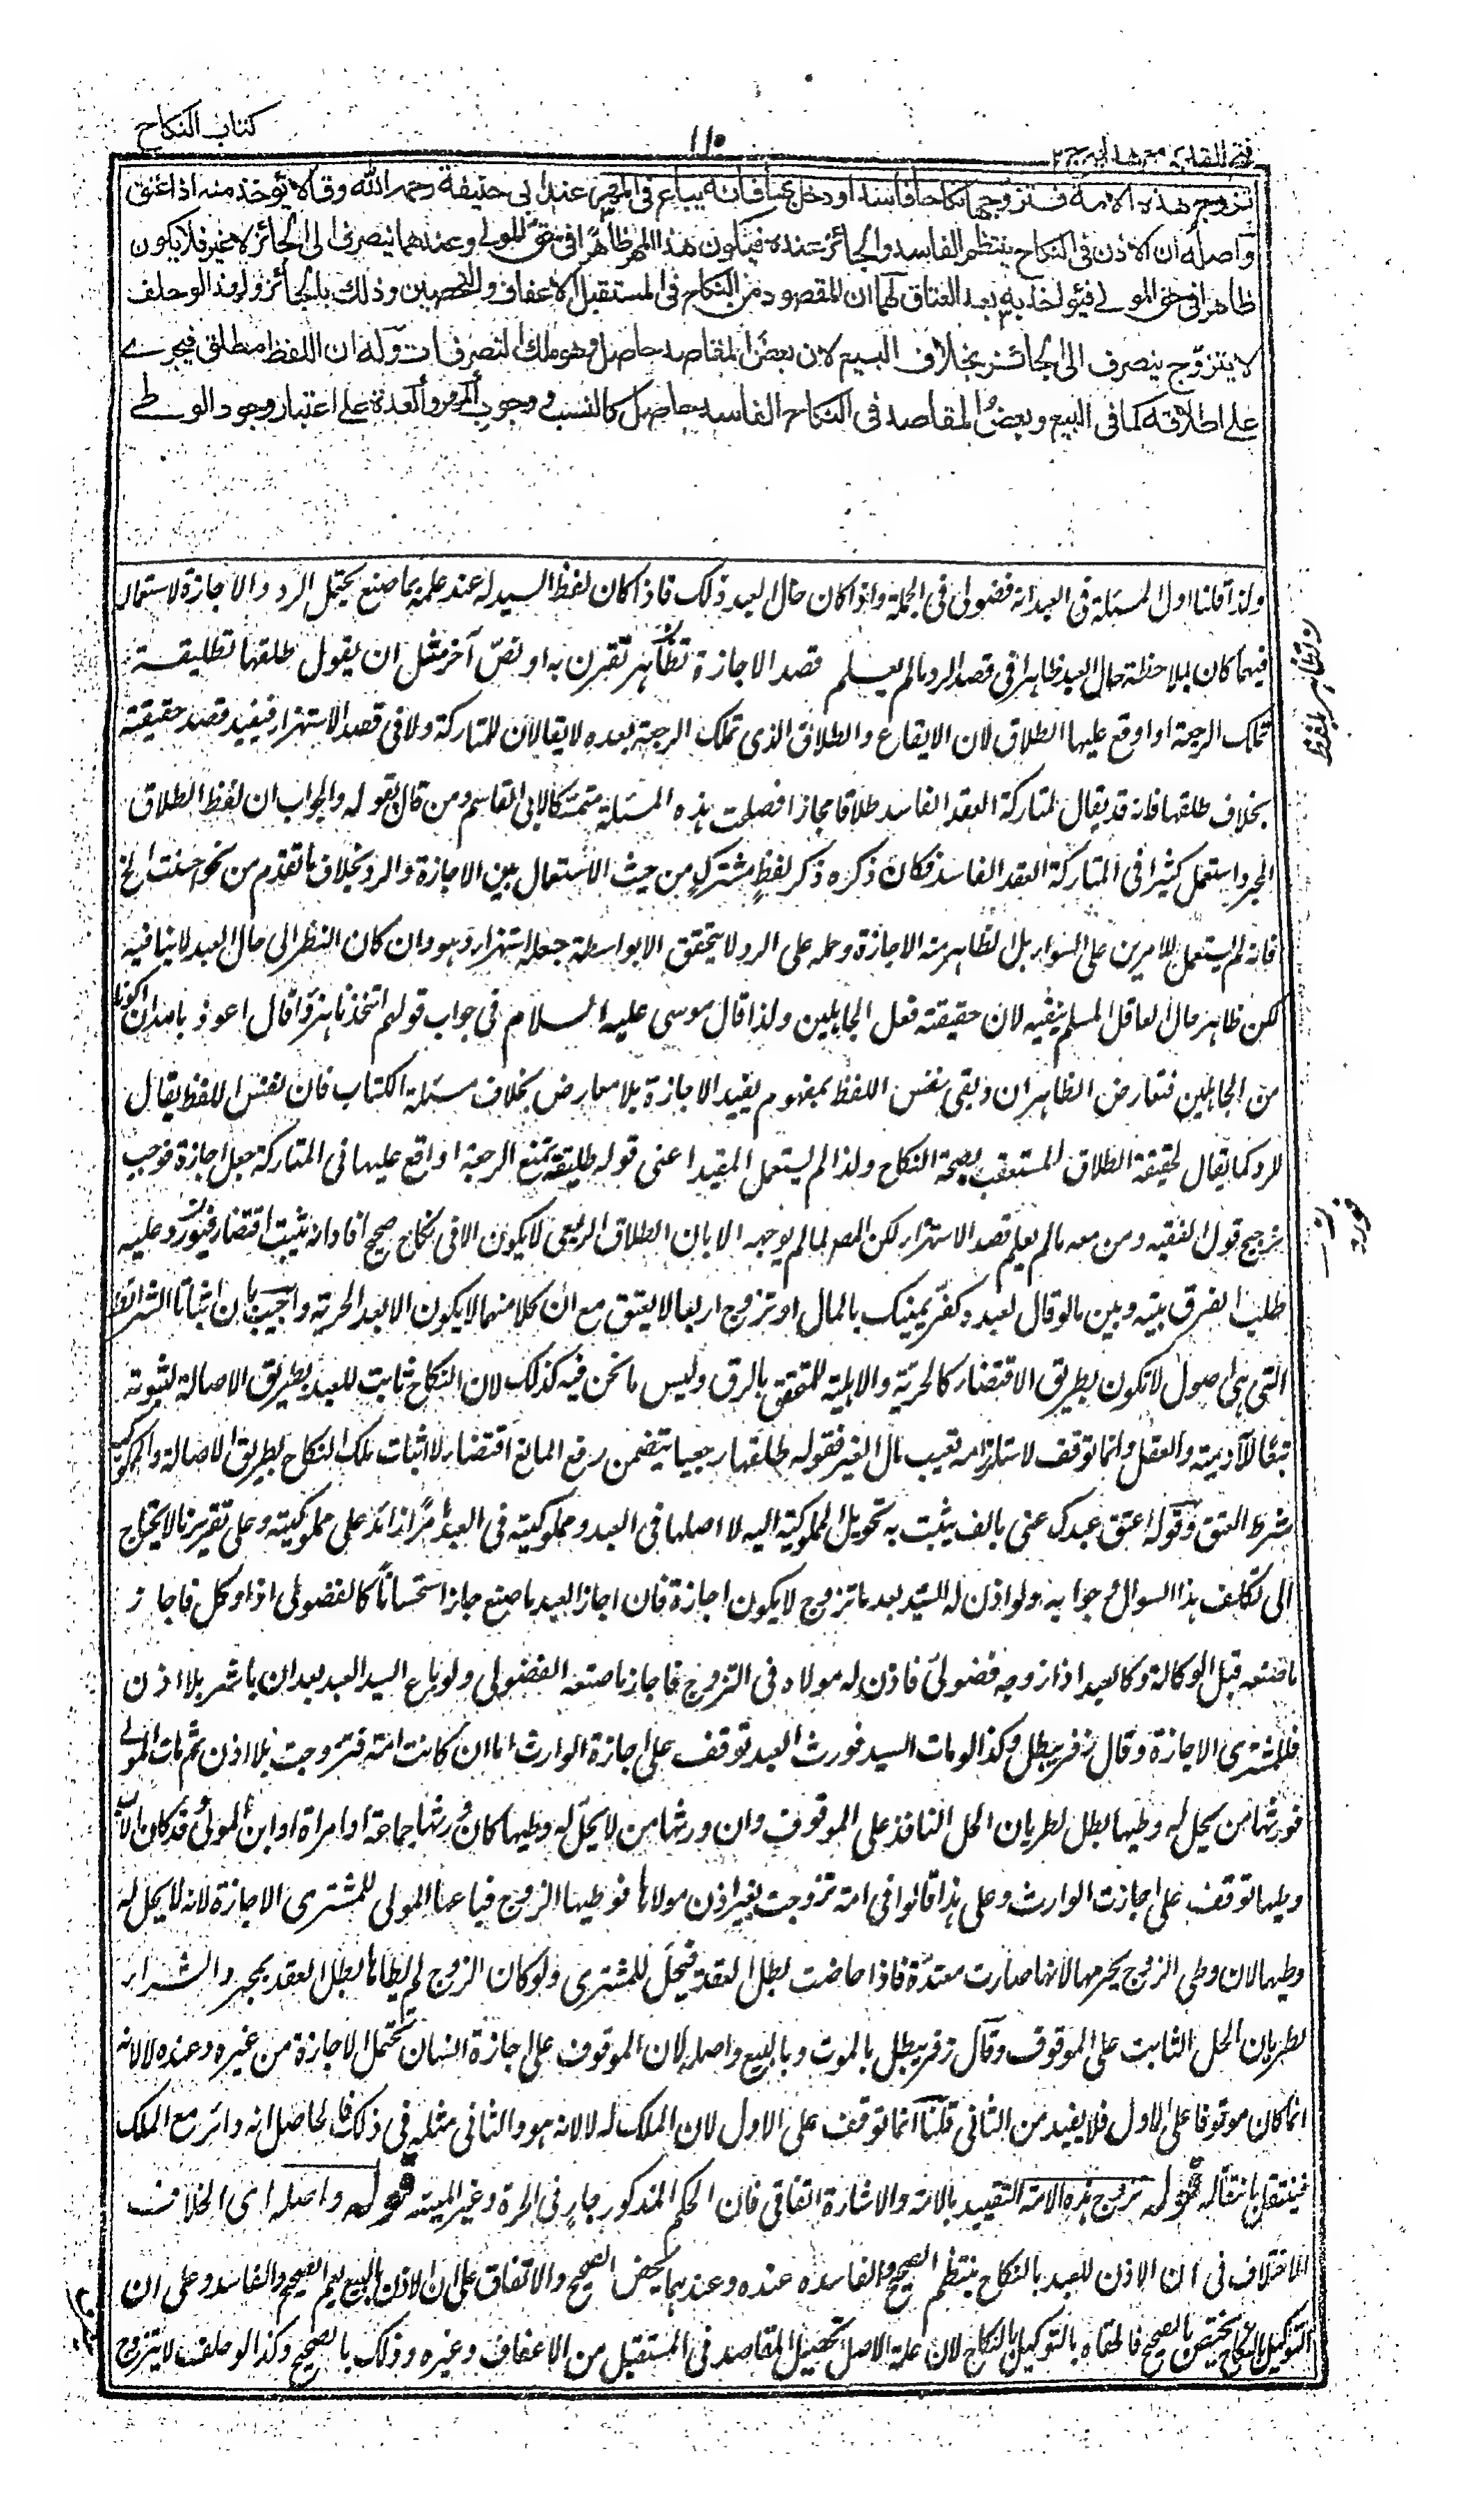 كتاب النكاح
١١٠
فتح القدير مع هدايه ج ٢
تزوج هذه الامة فتزوجها نكاحا فاسدا ودخل بها فانه يباع في المهر عند ابي حنيفة رحمه الله وقالا يؤخذ منه اذا عتق
وآصله ان الاذن في النكاح ينتظم الفاسد والجائز عنده فيكون هذا المهر ظاهرا في حق المولے وعندهما ينصرف الى الجائز لا غير فلا يكون
ظاهرا في حق المولے فيؤاخذ به بعد العتاق لهما ان المقصود من النكاح في المستقبل الاعفاف والتحصين وذلك بالجائز ولهذا لو حلف
لا يتزوج ينصرف الى الجائز بخلاف البيع لان بعض المقاصد حاصل وهو ملك التصرفات وله ان اللفظ مطلق فيجرے
علے اطلاقه كما في البيع وبعض المقاصد في النكاح الفاسد حاصل كالنسب ووجوب المهر والعدة علے اعتبار وجود الوطے
ولذا قلنا اول المسئلة في العبد انه فضولى في الجملة واذا كان حال العبد ذلك فاذا كان لفظ السيد له عند علمه بما صنع يحتمل الرد والاجازة لاستعماله
فيهما كان بملاحظة حال العبد ظاهرا في قصد الرد ما لم يعلم قصد الاجازة بظاهر تقترن به او نص آخر مثل ان يقول طلقها تطليقة
تملك الرجعة او اوقع عليها الطلاق لان الايقاع والطلاق الذى تملك الرجعة بعده لا يقالان للمتاركة ولا في قصد الاستهزاء فيفيد قصد حقيقته
بخلاف طلقها فانه قد يقال لمتاركة العقد الفاسد طلاقا مجازا فصلحت هذه المسئلة متمسكا لابى القاسم ومن قال بقوله والجواب ان لفظ الطلاق
المجرد استعمل كثيرا في المتاركة العقد الفاسد فكان ذكره ذكر لفظ مشترك من حيث الاستعمال بين الاجازة والرد بخلاف ما تقدم من نحو احسنت الخ
فانه لم يستعمل للامرين على السواء بل الظاهر منه الاجازة وحمله على الرد لا يتحقق الا بواسطة جعله استهزاء وهو وان كان النظر الى حال العبد لا ينافيه
لكن ظاهر حال العاقل المسلم ينفيه لان حقيقته فعل الجاهلين ولذا قال موسى عليه السلام في جواب قولهم اتتخذنا هزوا قال اعوذ بالله ان اكون
من الجاهلين فتعارض الظاهران وبقى نفس اللفظ بمفهومه يفيد الاجازة بلا معارض بخلاف مسئلة الكتاب فان نفس اللفظ يقال
للرد كما يقال لحقيقة الطلاق المستعقب لصحة النكاح ولذا لم يستعمل المقيد اعنى قوله طليقة تمنع الرجعة او اقع عليها في المتاركة جعل اجازة فوجب
ترجيح قول الفقيه ومن معه ما لم يعلم قصد الاستهزاء لكن المصر لما لم يوجهه الا بان الطلاق الرجعى لا يكون الا في نكاح صحيح افاد انه يثبت اقتضاء فيتورد عليه
طلب الفرق بينه وبين ما لو قال لعبده كفر يمينك بالمال او تزوج اربعا لا يعتق مع ان كلا منهما لا يكون الا بعد الحرية واجيب بان اثبات الشرائط
التى هى اصول لا تكون بطريق الاقتضاء كالحرية والاهلية للتحقق بالرق وليس ما نحن فيه كذلك لان النكاح ثابت للعبد بطريق الاصالة لثبوته
تبعا للآدمية والعقل وانما توقف لاستلزامه تعييب مال الغير فقوله طلقها رجعيا يتضمن رفع المانع اقتضاء لا اثبات ملك النكاح بطريق الاصالة والمملوكية
شرط العتق وقوله اعتق عبدك عنى بالف يثبت به تحويل المملوكية اليه لا اصلها في العبد ومملوكيته في العبد امرا زائد على مملوكيته وعلى تقريرنا لا يحتاج
الى تكلف هذا السوال وجوابه ولو اذن له السيد بعد ما تزوج لا يكون اجازة فان اجاز العبد ما صنع جاز استحسانا كالفضولى اذا وكل فاجاز
ما صنعه قبل الوكالة وكالعبد اذا زوجه فضولى فاذن له مولاه في التزوج فاجاز ما صنعه الفضولى ولو باع السيد العبد بعد ان باشر بلا اذن
فللمشترى الاجازة وقال زفر يبطل وكذا لو مات السيد فورث العبد توقف على اجازة الوارث اما ان كانت امة فتزوجت بلا اذن ثم مات المولے
فورثها من يحل له وطيها بطل لطريان الحل النافذ على الموقوف وان ورثها من لا يحل له وطيها كان ورثها جماعة او امراة او ابن المولى وقد كان الاب
وطيها توقف على اجازة الوارث وعلى هذا قالوا في امة تزوجت بغير اذن مولاها فوطيها الزوج فباعها المولى للمشترى الاجازة لانه لا يحل له
وطيها لان وطى الزوج يحرمها لانها صارت معتدة فاذا حاضت بطل العقد فيحل للمشترى ولو كان الزوج لم يطأها بطل العقد بمجرد الشراء
لطريان الحل الثابت على الموقوف وقال زفر يبطل بالموت وبالبيع واصله ان الموقوف على اجازة انسان تحتمل الاجازة من غيره وعنده لا لانه
انما كان موقوفا على الاول فلا يفيد من الثانى قلنا انما توقف على الاول لان الملك له لا لانه هو والثانى مثله في ذلك فالحاصل انه دائر مع الملك
فينتقل بانتقاله قوله تزوج هذه الامة التقييد بالامة والاشارة اتفاقى فان الحكم المذكور جار في الحرة وغير المعينة قوله واصله اى الخلاف
الاختلاف في ان الاذن للعبد بالنكاح ينتظم الصحيح والفاسد عنده وعندهما يخص الصحيح والاتفاق على ان الاذن بالبيع يعم الصحيح والفاسد وعلى ان
التوكيل بالنكاح يختص بالصحيح فالحقاه بالتوكيل بالنكاح لان علة الاصل تحصيل المقاصد في المستقبل من الاعفاف وغيره وذلك بالصحيح وكذا لو حلف لا يتزوج